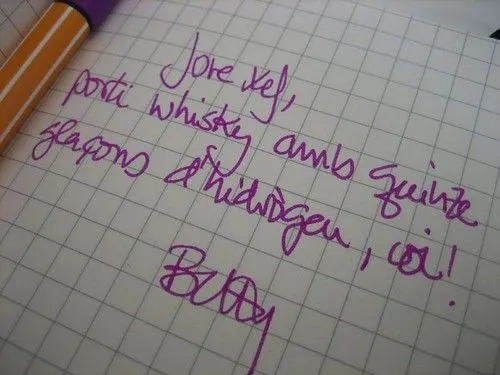 Jove xef,
porti whisky amb quinze
glaçons d'hidrogen, coi!
Betty